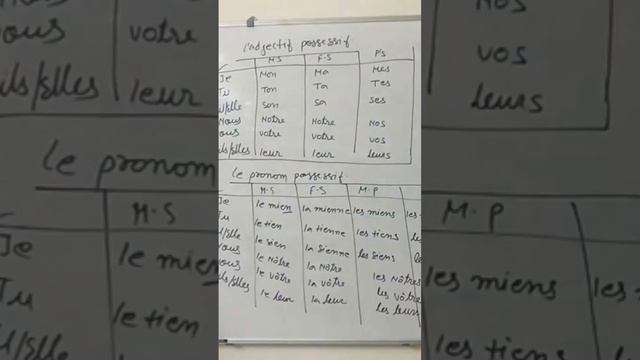 l'adjectif possessif
M.S F.S P/S
Je Mon Ma Mes
Tu Ton Ta Tes
il/elle son sa ses
Nous Notre Notre Nos
ous votre votre vos
ils/elles leur leur leurs
le pronom possessif
M.S F.S M.P
Je le mien la mienne les miens les
Tu le tien la tienne les tiens les
il/elle le sien la sienne les siens
ous le nôtre la nôtre les nôtres
ous le vôtre la vôtre les vôtres
ils/elles le leur la leur les leurs